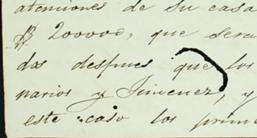 atenciones de su casa
$ 200000, que sera
dos despues que los
narios y Jimenez, y
este caso los prime